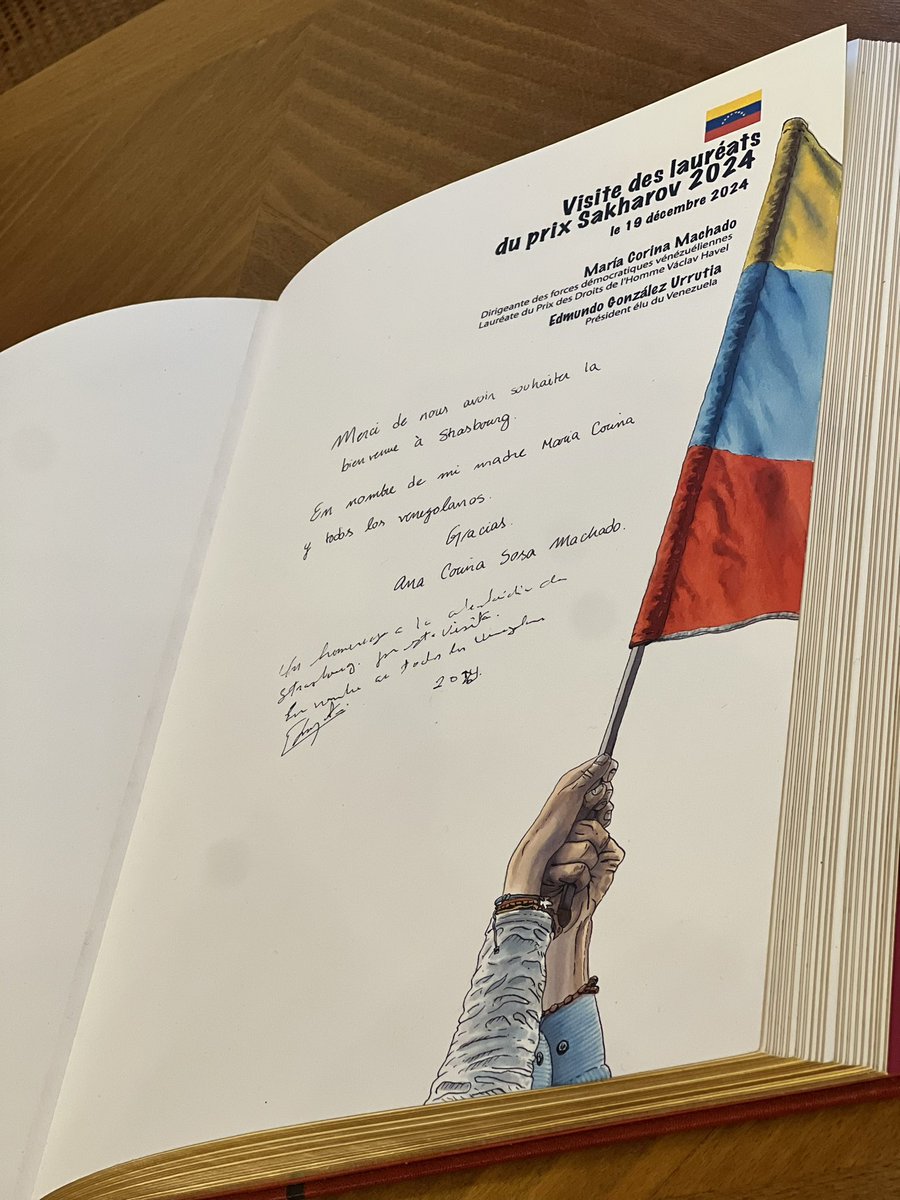 Visite des lauréats
du prix Sakharov 2024
le 19 décembre 2024
María Corina Machado
Dirigeante des forces démocratiques vénézuéliennes
Lauréate du Prix des Droits de l'Homme Václav Havel
Edmundo González Urrutia
Président élu du Venezuela
Merci de nous avoir souhaiter la
bienvenue à Strasbourg.
En nombre de mi madre Maria Corina
y todos los venezolanos.
Gracias.
Ana Corina Sosa Machado.
Un homenaje a la
Strasbourg por esta visita.
En nombre de todos los